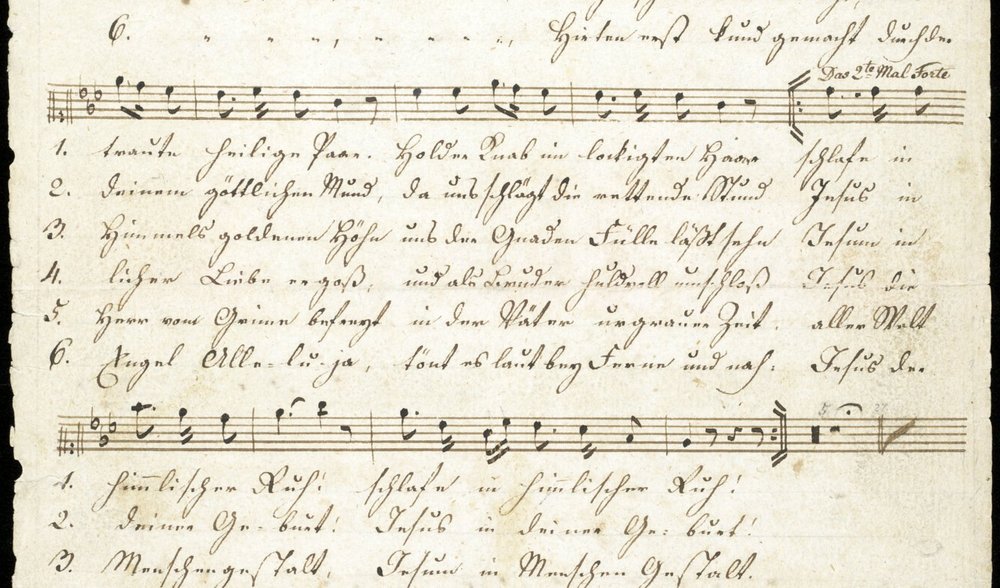 6. " " " " " " " " Hirten erst kund gemacht durch der
Das 2te Mal Forte
1. traute heilige Paar. Holder Knab im lockigten Haar schlafe in
2. deinem göttlichen Mund, da uns schlägt die rettende Stund Jesus in
3. Himmels goldenen Höhn uns der Gnaden Fülle läßt sehn Jesum in
4. licher Liebe ergoß, und als Bruder huldvoll umschloß Jesus die
5. Herr vom Grime befreyt in der Väter urgrauer Zeit aller Welt
6. Engel Alle-lu-ja, tönt es laut bey Ferne und nah: Jesus der
1. himlischer Ruh! schlafe in himlischer Ruh!
2. deiner Ge-burt! Jesus in deiner Ge-burt!
3. Menschengestalt, Jesum in Menschen Gestalt.